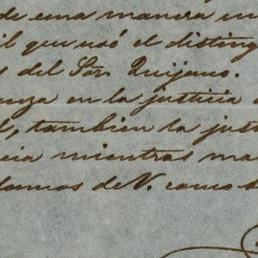 de una manera in
il que usó el disting
s del Sor. Quijano.
nza en la justicia
l, tambien la just
cia mientras ma
damos de V. como s